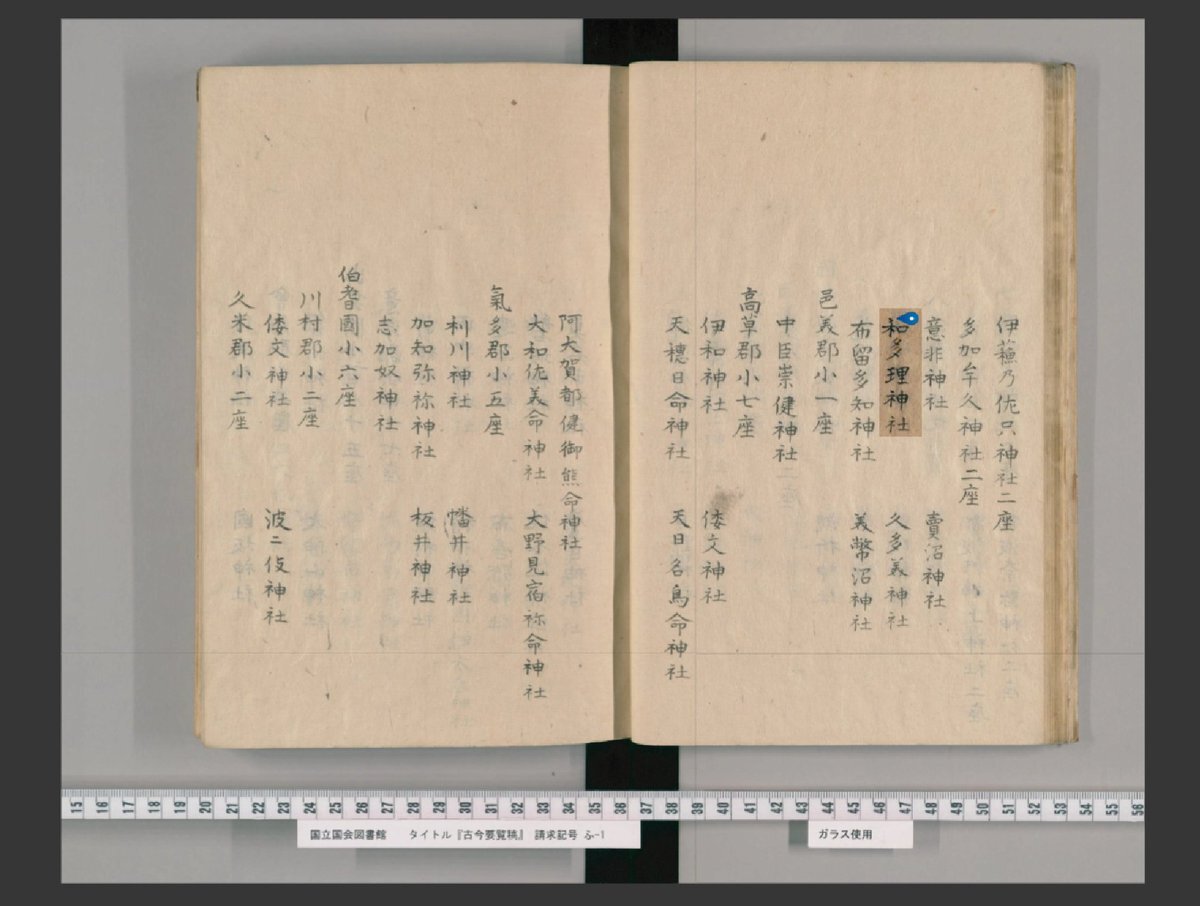 伊蘓乃佐只神社二座
多加牟久神社二座
意非神社　賣沼神社
和多理神社　久多美神社
布留多知神社　美幣沼神社
邑美郡小一座
中臣崇健神社
高草郡小七座
伊和神社　倭文神社
天穂日命神社　天日名鳥命神社
阿大賀都健御熊命神社
大和佐美命神社　大野見宿祢命神社
氣多郡小五座
利川神社　幡井神社
加知弥神社　板井神社
志加奴神社
伯耆國小六座
川村郡小二座
倭文神社　波二伎神社
久米郡小二座
15 16 17 18 19 20 21 22 23 24 25 26 27 28 29 30 31 32 33 34 35 36 37 38 39 40 41 42 43 44 45 46 47 48 49 50 51 52 53 54 55 56
国立国会図書館　タイトル『古今要覧稿』　請求記号 ふ-1
ガラス使用